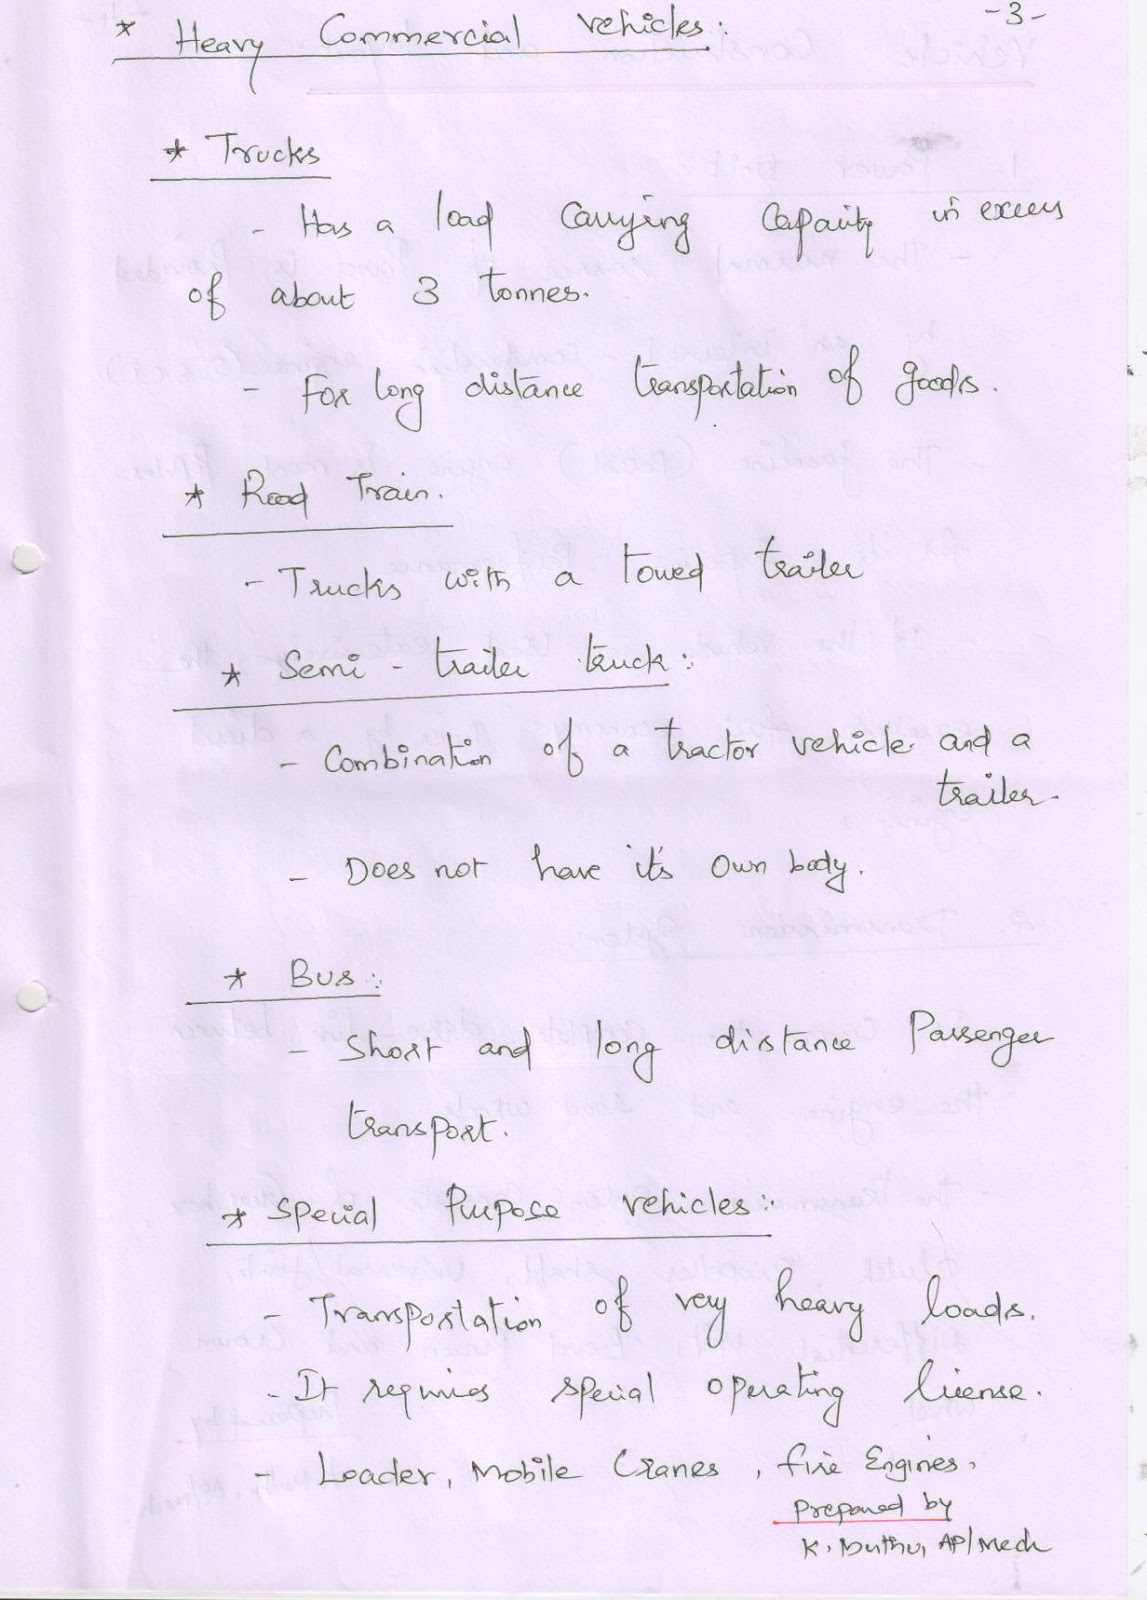 -3-
* Heavy Commercial vehicles:
* Trucks
- Has a load carrying capacity in excess
of about 3 tonnes.
- For long distance transportation of goods.
* Road Train.
- Trucks with a towed trailer
* Semi - trailer truck:
- Combination of a tractor vehicle and a
trailer.
- Does not have it's own body.
* Bus:
- Short and long distance Passenger
transport.
* Special Purpose vehicles:
- Transportation of very heavy loads.
- It requires special operating license.
- Loader, Mobile Cranes, fire Engines.
Prepared by
K. Muthu, AP/Mech